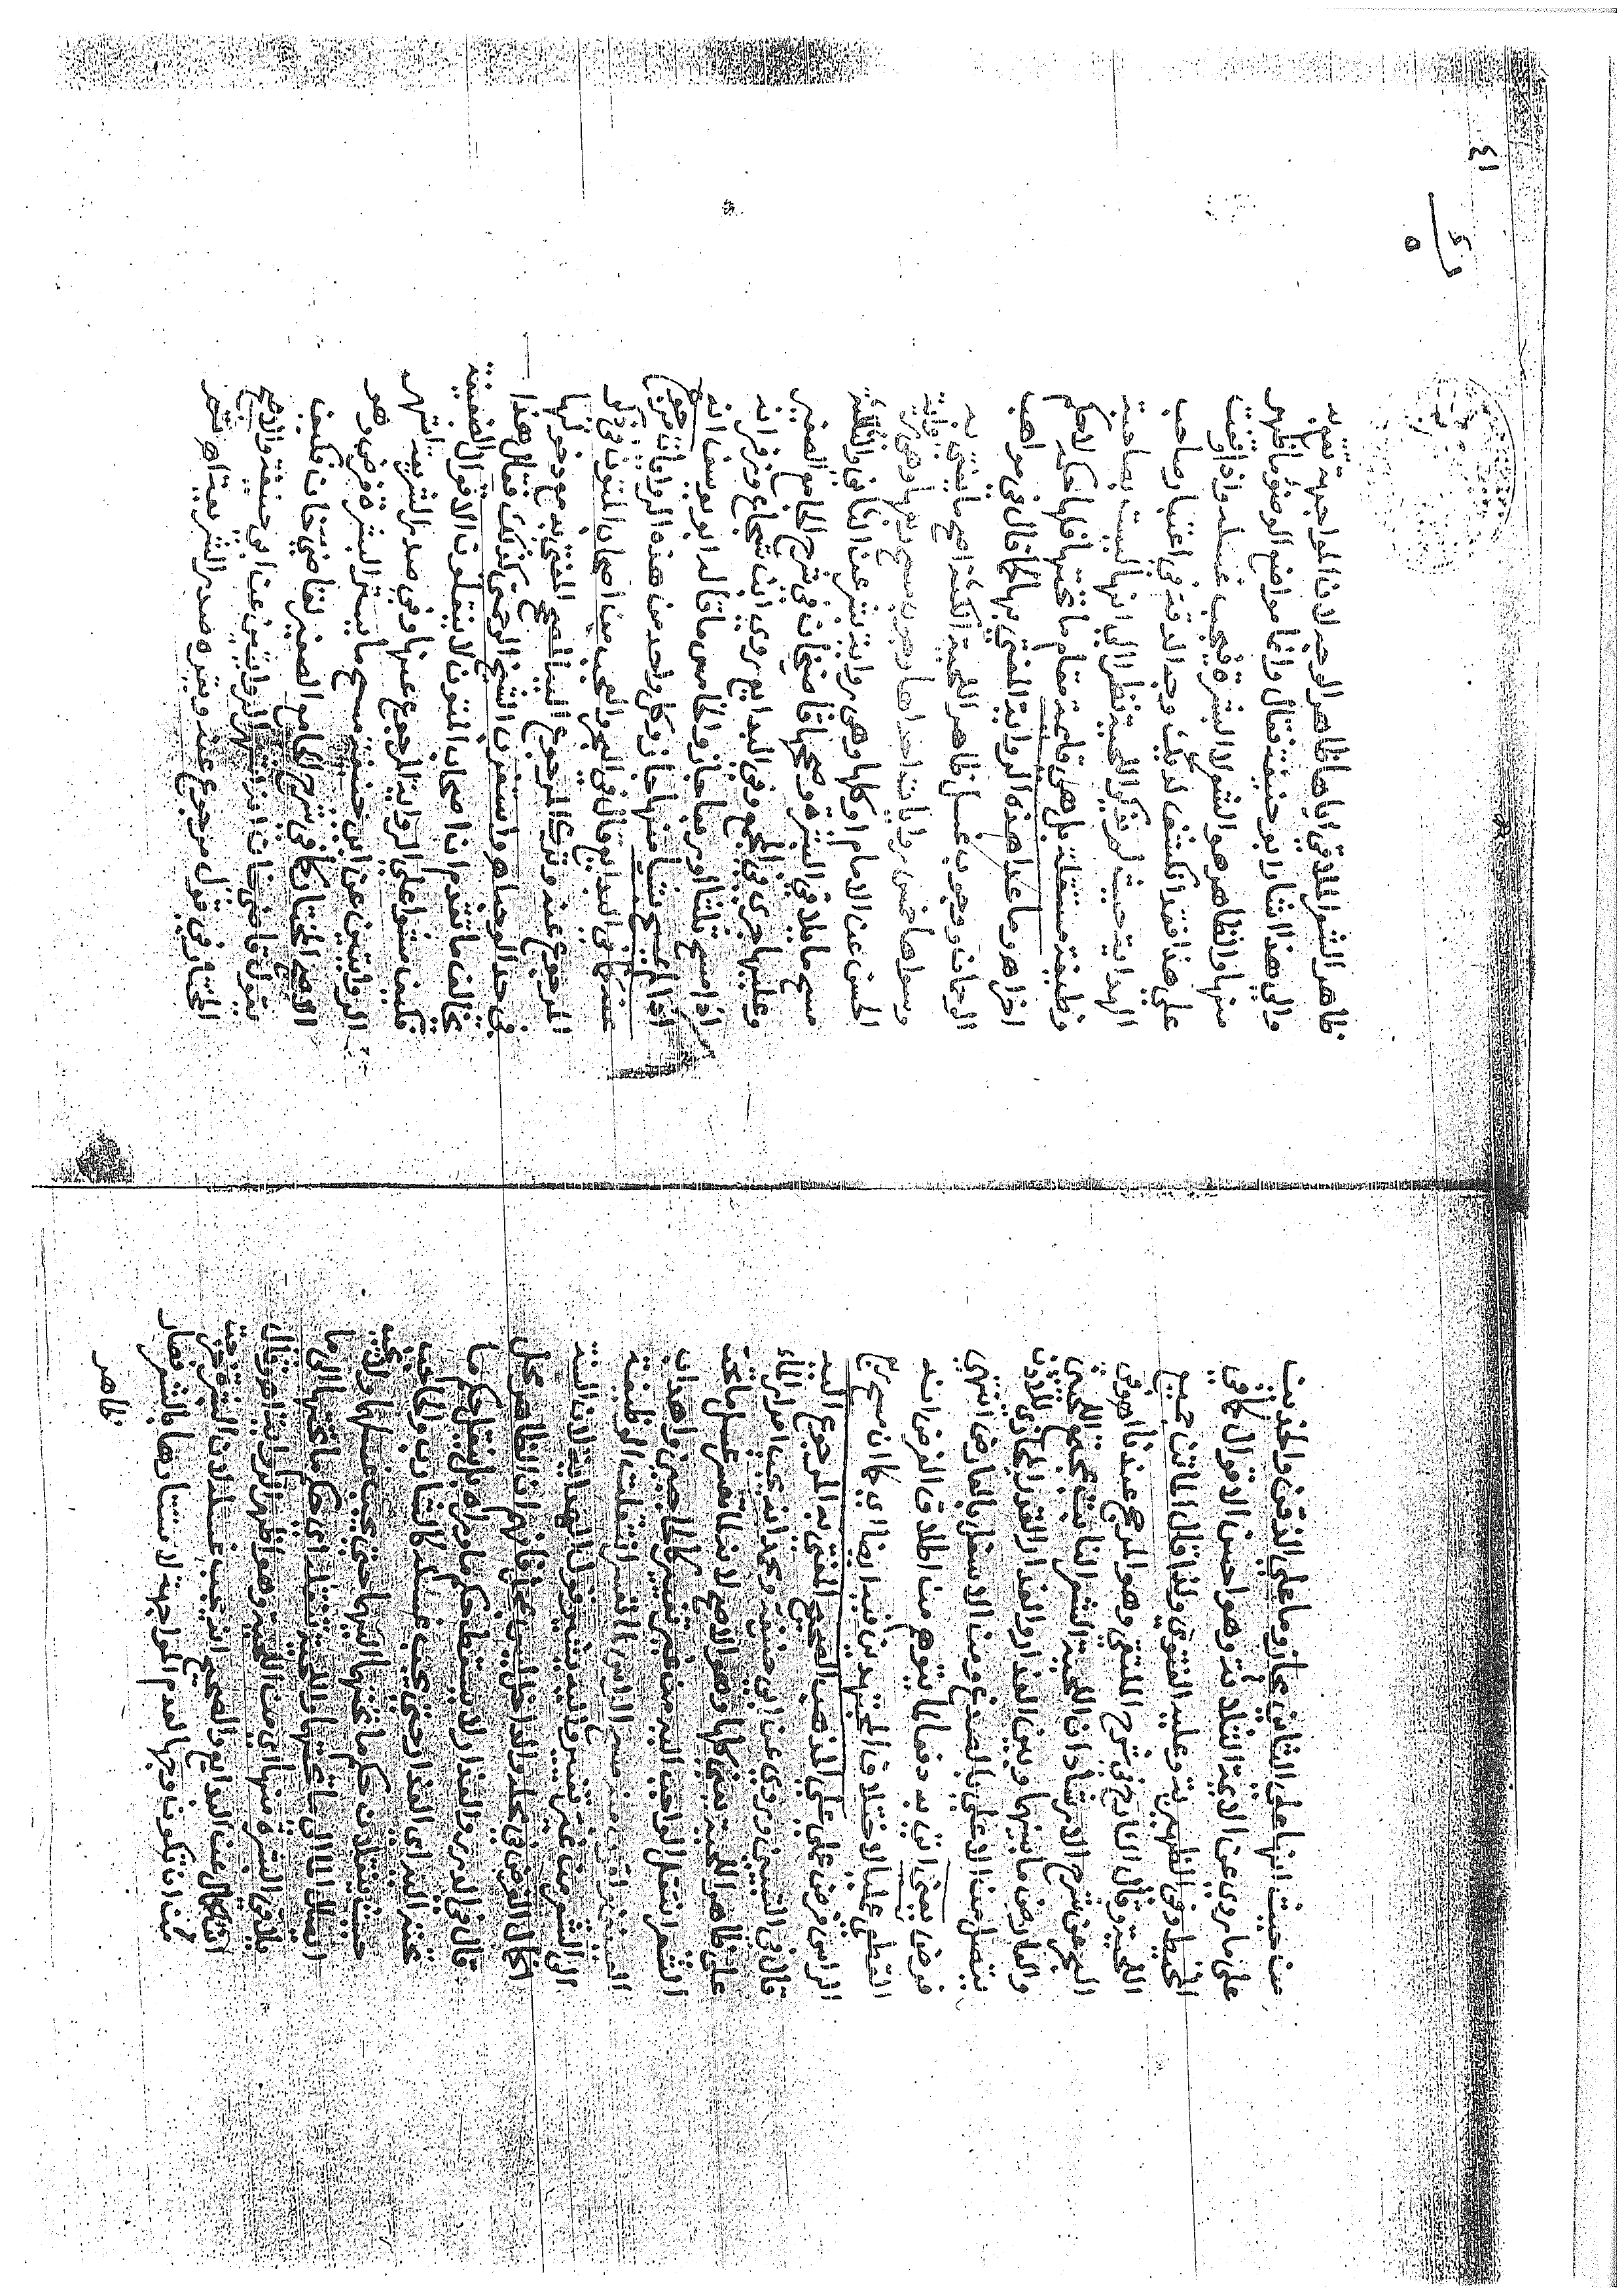 من حيث انها على مجاز وما على الذقن والخدين
على ما روي عن الايمة الثلاثة وهو احسن الاقوال كما في
المحيط وفي الظهيرية وعليه الفتوى ولذا قال الماتن جميع
اللحية وقال الشارح في شرح الملتقى وهو المرجح عندنا اهـ وفي
البحر عن شرح الارشاد ان اللحية الشعر النابت بمجتمع اللحيين
والعارض ما بينهما وبين العذار والعذار القدر المحاذي للاذن
يتصل من الاعلى بالصدغ ومن الاسفل بالعارض انتهى
فرض يعني اتى به دفعا لما يتوهم من اطلاق الفرض انه
القطعي عمليا لاختلاف المجتهدين فيه ايضا اي كما ان مسح ربع
الراس فرض عملي على المذهب الصحيح المفتى به المرجوع اليه
قال في التبيين وروي عن ابي حنيفة ومحمد انه يجب امرار الماء
على ظاهر اللحية يعني كلها وهو الاصح لانه لما تعسر غسل ما تحت
الشعر انتقل الواجب اليه من غير تغيير كالحاجبين واهداب
العينين فرق بينه وبين مسح الراس ان انتقلت الوظيفة
الى الشعر من غير تغيير واليه يشير قول الهداية لان السنة
اكمال الفرض في محله والداخل ليس بمحل فافهم ان الظاهر محل
قال في الدرر والعذار لا يسقط حكم ما وراءه بل ينتقل حكم ما
تحته اليه اي العذار حتى يجب غسله كالشارب والحاجب
حيث ينتقلان حكم ما تحتهما اليهما حتى يجب غسلهما ولا يجب
ايصال الماء الى ما تحتهما واللحية تنقله اي حكم ما تحتها الى ما
يلاقي البشرة منها اي من اللحية وهو اظهر الروايات اهـ وقال
الكمال عن البدايع والصحيح انه يجب غسله لان البشرة خرجت
من ان تكون وجها لعدم المواجهة لاستتارها بالشعر فصار
ظاهر
ظاهر الشعر الملاقي اياها ظاهر الوجه لان المواجهة تقع به
والى هذا اشار ابو حنيفة فقال وانما مواضع الوضوء ما ظهر
منها والظاهر هو الشعر لا البشرة فيجب غسله واذا وقفت
على هذا فقد انكشف لديك وجه الدقة في اعتبار صاحب
الهداية حيث لم يذكر اللحية نظرا الى انها ليست بصاحبة
وظيفة مستقلة بل هي قائمة مقام ما تحتها فلها حكمه لا حكم
اخر اهـ وما عدا هذه الرواية المفتى بها كما قال في مواهب
الرحمان ووجوب غسل ظاهر اللحية الكثة اصح ما يفتى به
وسواها خمس روايات احداها وجوب مسح ربعها وهي رواية
الحسن عن الامام او كلها وهي رواية بشر عن الثاني والثلث
مسح ما يلاقي البشرة وصححها قاضيخان في شرح الجامع الصغير
وعليها جرى في المجمع وفي البدايع روى ابن شجاع وزفر انه
اذا مسح ثلثا او ربعا جاز والخامس ما قاله ابو يوسف انه
اذا لم يمسح شيا منها جاز وكل واحد من هذه الروايات مرجوع
عنه كما في البدايع قال في البحر والعجب من اصحاب المتون في ذكر
المرجوع عنه وترك المرجوع اليه الصحيح المفتى به مع دخولها
في حد الوجه اهـ واستغرب الشيخ الرحمتي كذلك فقال هذا
يخالف ما تقدم ان اصحاب المتون لا ينقلون الاقوال الضعيفة
فكيف مشوا على الرواية المرجوع عنها وفي صدر الشريعة اشهر
الروايتين عن ابي حنيفة مسح ما يستر البشرة فرض وهو
الاصح المختار كما في شرح الجامع الصغير لقاضيخان فكيف
يقول قاضيخان انه اشهر الروايتين عن ابي حنيفة والاصح
المختار وفي قول مرجوع عنه ويقره صدر الشريعة اهـ نعم